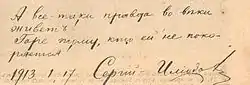 А все-таки правда во вѣки
живетъ
Горе тому, кто ей не поко-
ряется
1913. 1. 17. Сергій